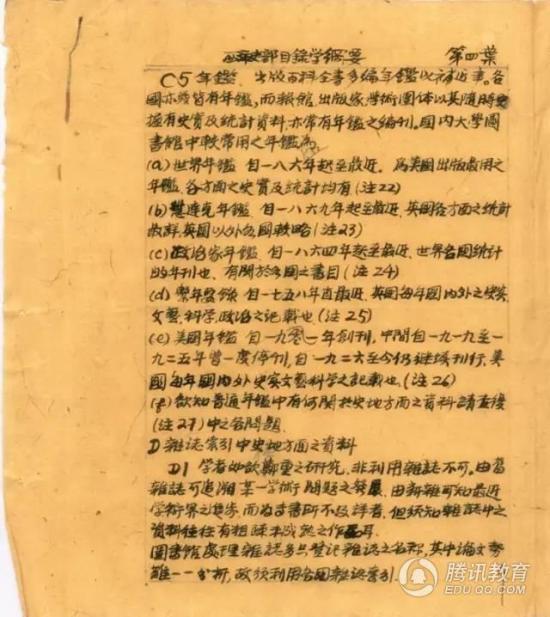 西洋史部目錄学綱要 第四葉
C5 年鑑. 出版百科全書多編年鑑以補此事。各
國亦皆有年鑑,而報館,出版家,學術團体以其隨時
握有史實及統計資料,亦常有年鑑之編刊。国内大學圖
書館中較常用之年鑑為
(a) 世界年鑑 自一八六年起至最近. 為美國出版最用之
年鑑,各方面之史實及統計均有(注22)
(b) 惠達克年鑑 自一八六九年起至最近,英國各方面之統計
最詳,英國以外各國較略(注23)
(c) 政治家年鑑 自一八六四年起至最近,世界各國統計
的年刊也. 有關於各國之書目(注24)
(d) 自一七五八年直最近,英國每年國内外之史實,
文藝,科学,政治之記載也.(注25)
(e) 美国年鑑 自一九〇一年創刊,中間自一九一九至一
九二五年曾一度停刊,自一九二六至今仍継续刊行.美
國每年國内外史实文藝科学之記載也.(注26)
(f) 欲知普通年鑑中有何関於史地方面之資料請查後
(注27)中之各問題.
D 雜誌索引中史地方面之資料
D1 学者如欲鄭重之研究,非利用雜誌不可。由舊
雜誌可追溯某一学術問題之發展,由新雜可知最近
学術界之進步,而為書所不及詳者,但须知雜誌中之
資料往往有粗疎未成熟之作耳
圖書館處理雜誌多只登記雜誌之名稱,其中論文勢
難一一分析,故须利用各国雜誌索引.
腾讯教育
EDU.QQ.COM